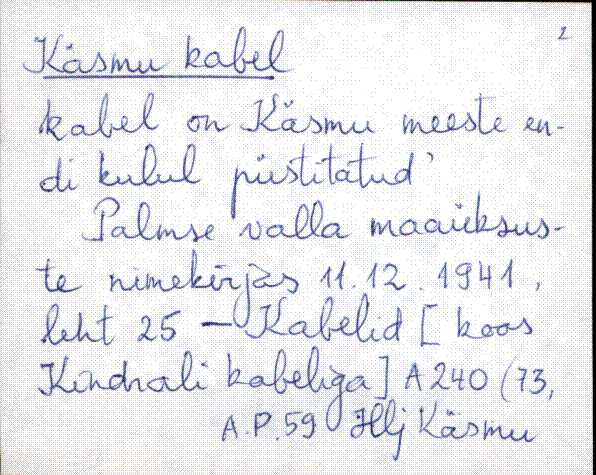 2
Käsmu kabel
kabel on Käsmu meeste en-
di kulul püstitatud'
Palmse valla maaüksus-
te nimekirjas 11.12.1941,
leht 25 – Kabelid [koos
Kindrali kabeliga] A240 (73,
A.P.59 Hlj Käsmu